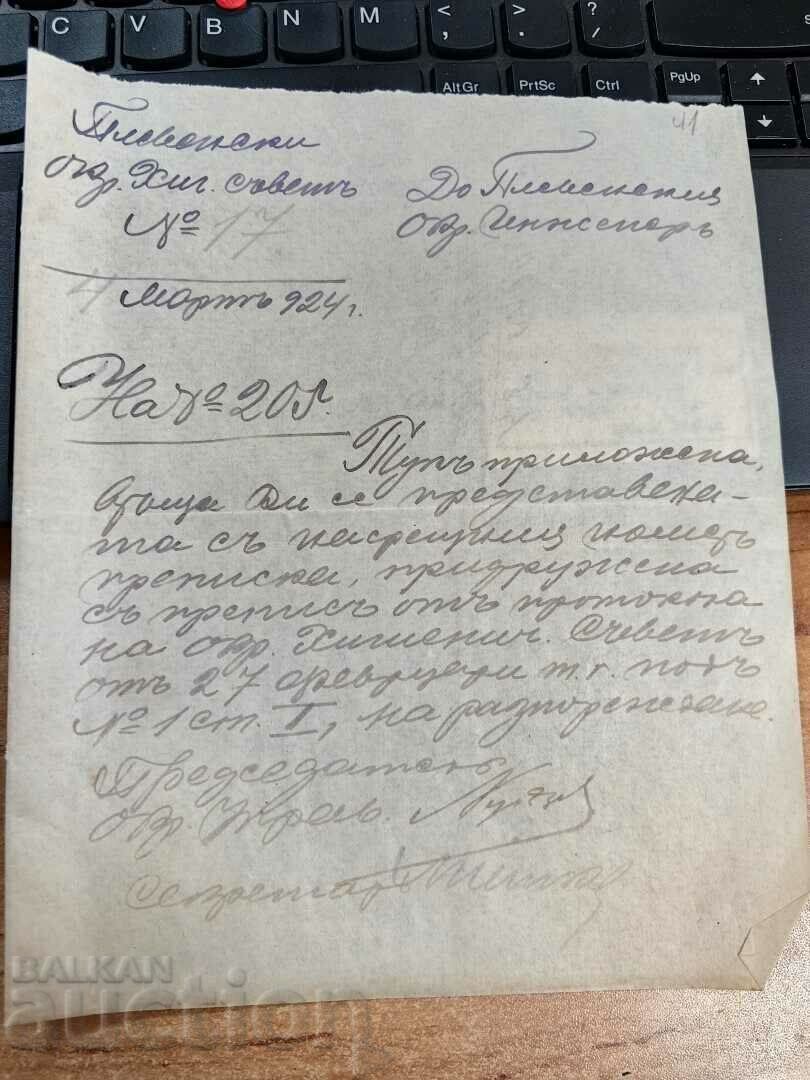 41
Плевенски
окр. Хиг. съветъ
№ 17
4 Мартъ 924 г.
До Плевенския
Окр. Инженеръ
На № 205.
Тукъ приложена,
връща Ви се представена-
та съ насрещния номеръ
преписка, придружена
съ преписъ отъ протокола
на окр. Хигиенич. Съветъ
отъ 27 февруари т.г. подъ
№ 1 ст. I, на разпореждане.
Председатель,
окр. Управ.
Секретарь
C V B N M < , > . ? /
AltGr PrtSc Ctrl PgUp
BALKAN
auction